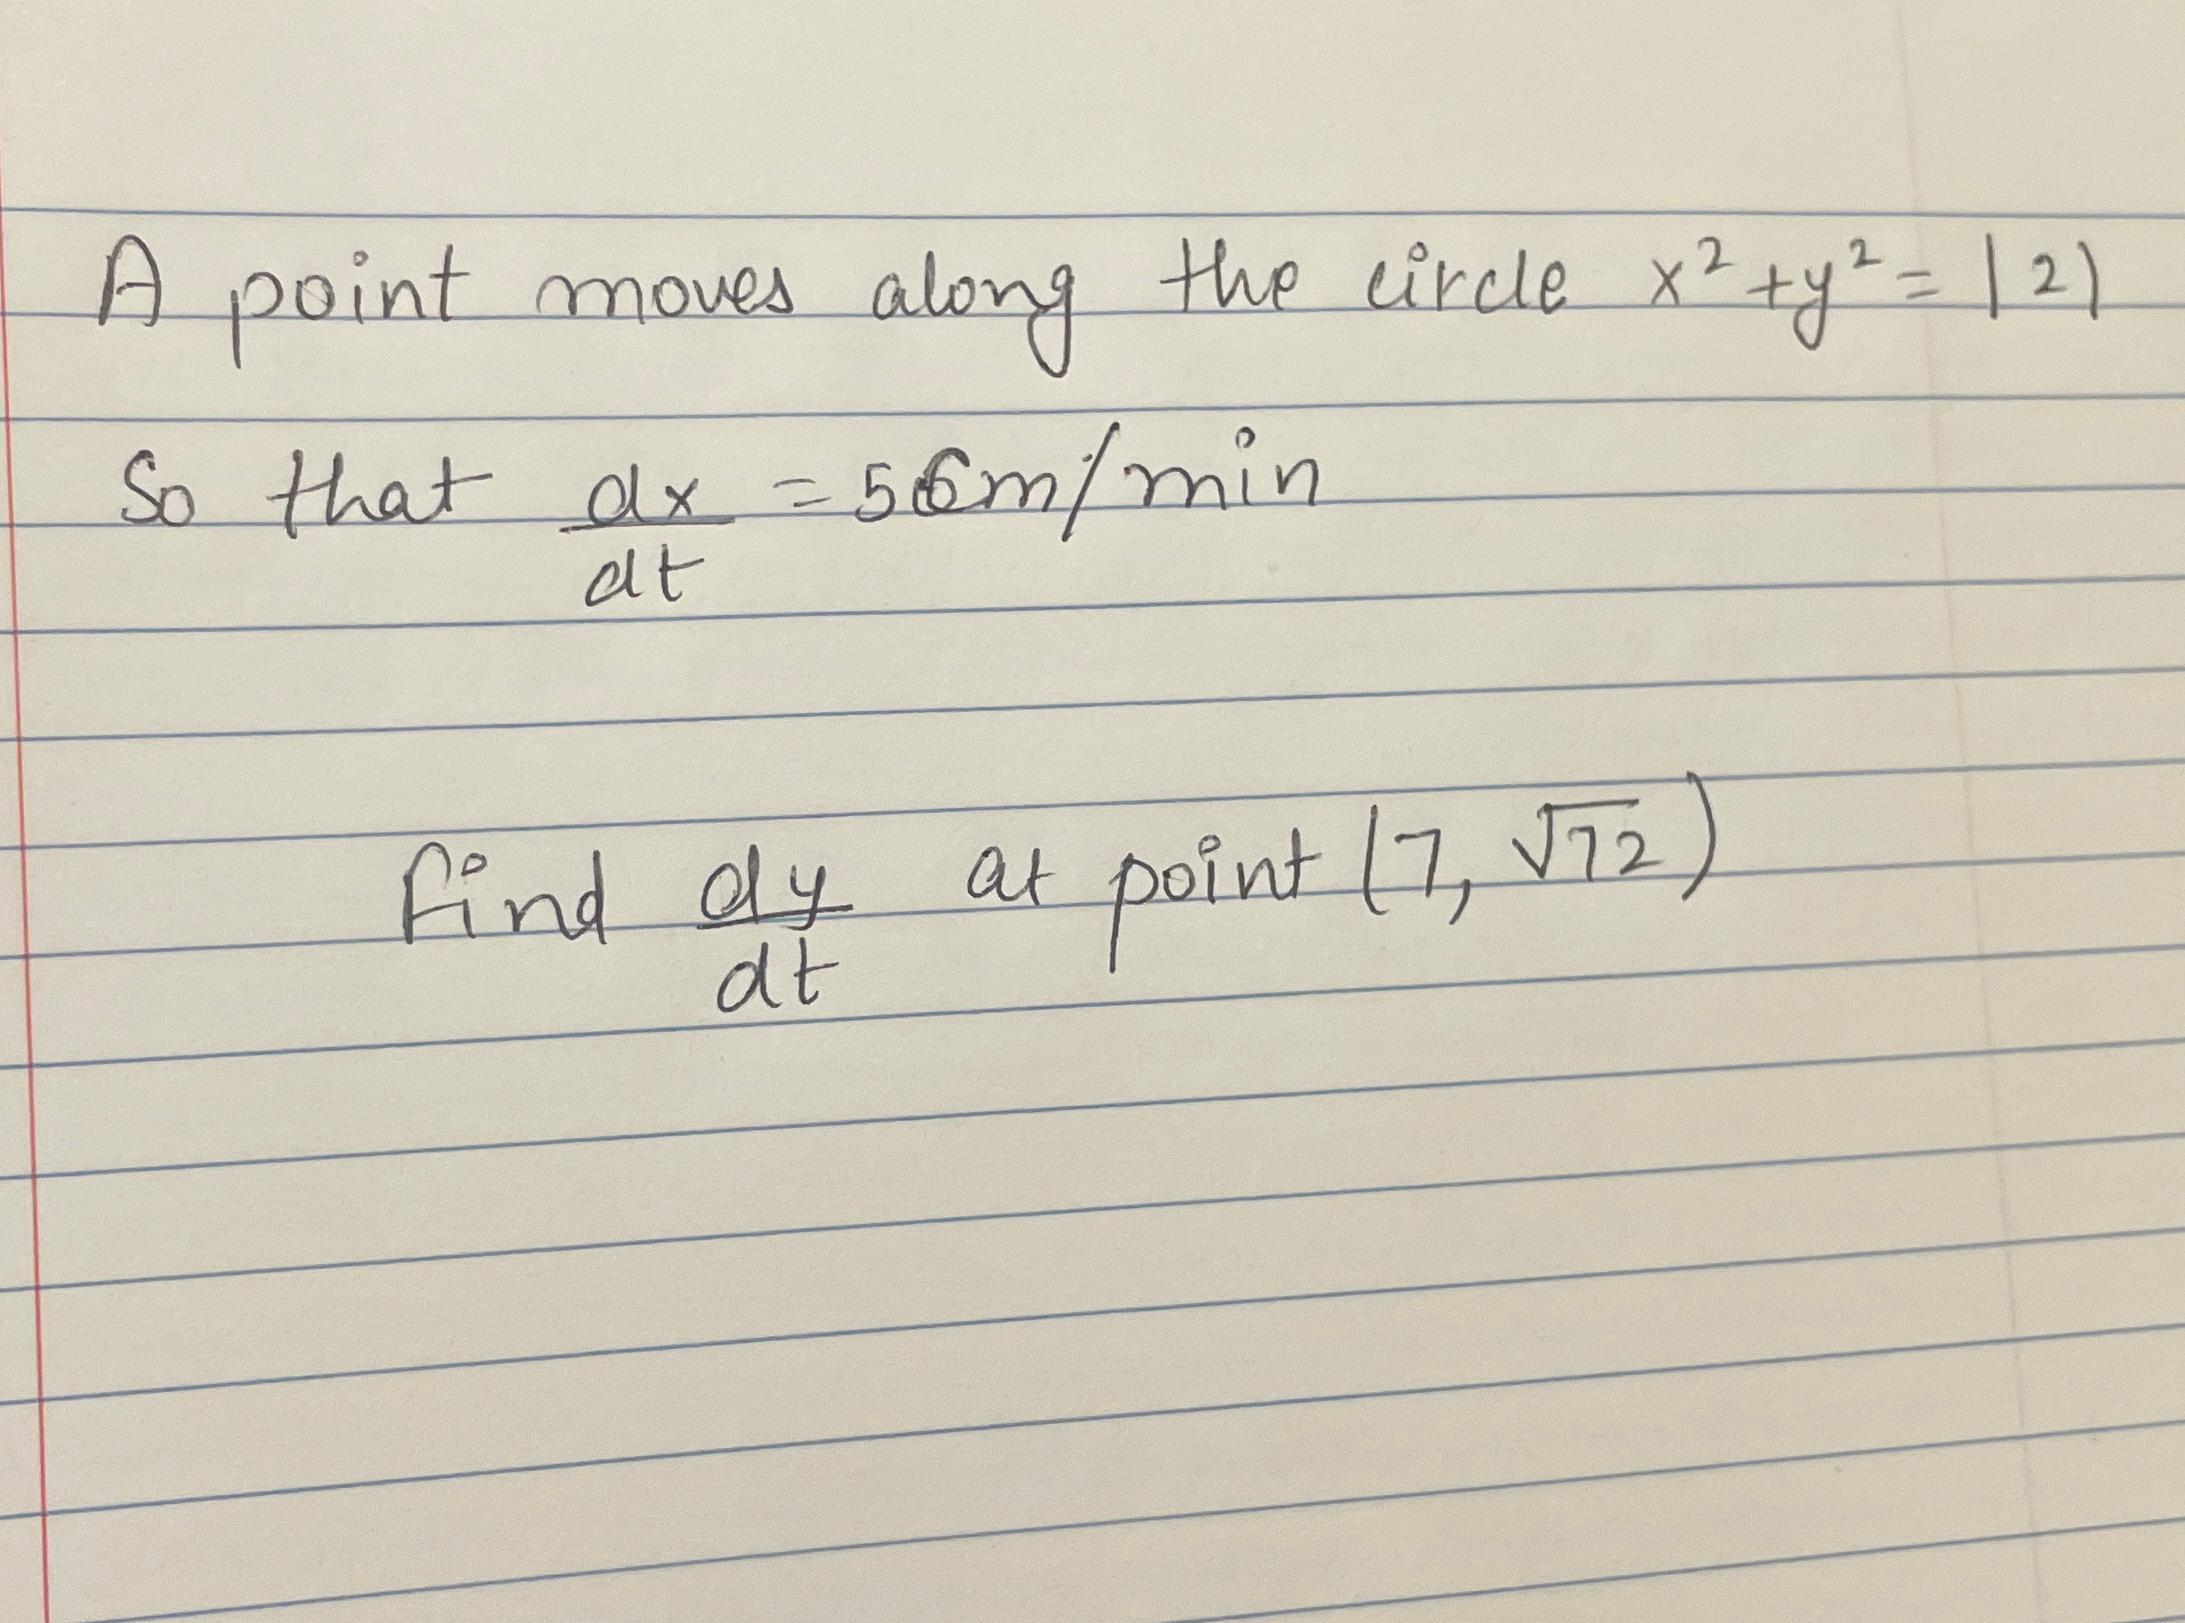 A point moves along the circle x² + y² = 121
So that dx/dt = 5cm/min
find dy/dt at point (7, √72)